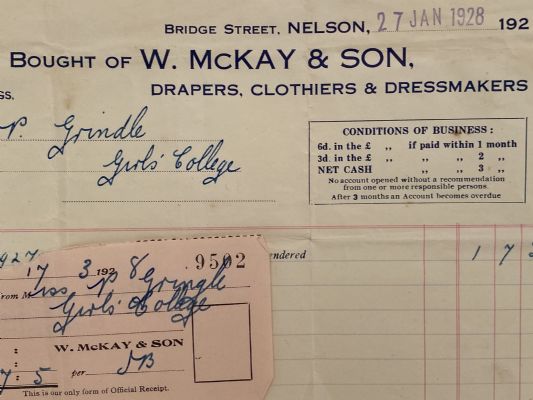 BRIDGE STREET, NELSON, 27 JAN 1928 192
BOUGHT OF W. MCKAY & SON,
DRAPERS, CLOTHIERS & DRESSMAKERS
GS,
P. Grindle
Girls' College
CONDITIONS OF BUSINESS:
6d. in the £ ,, if paid within 1 month
3d. in the £ ,, ,, ,, 2 ,,
NET CASH ,, ,, ,, 3 ,,
No account opened without a recommendation
from one or more responsible persons.
After 3 months an Account becomes overdue
endered 1 7
927
17 3 192 8 .9502
from Miss P Gringle
Girls' College
W. MCKAY & SON
7: 5 per JB
This is our only form of Official Receipt.